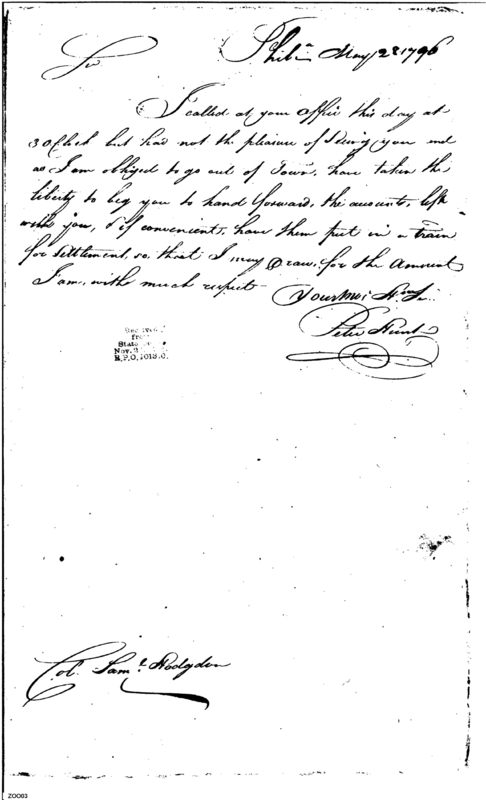 Philᵃ May 28 1796
Sir
I called at your office this day at
3 O Clock but had not the pleasure of Seeing you and
as I am obliged to go out of Town, have taken the
liberty to beg you to hand forward, the accounts, left
with you, & if convenient, have them put in a train
for settlement, so, that I may Draw, for the Amount
I am, with much respect
Your Most
Peter Hunt
Received
from
State
Nov. 2
Col. Samˡ Hodgdon
ZOO03